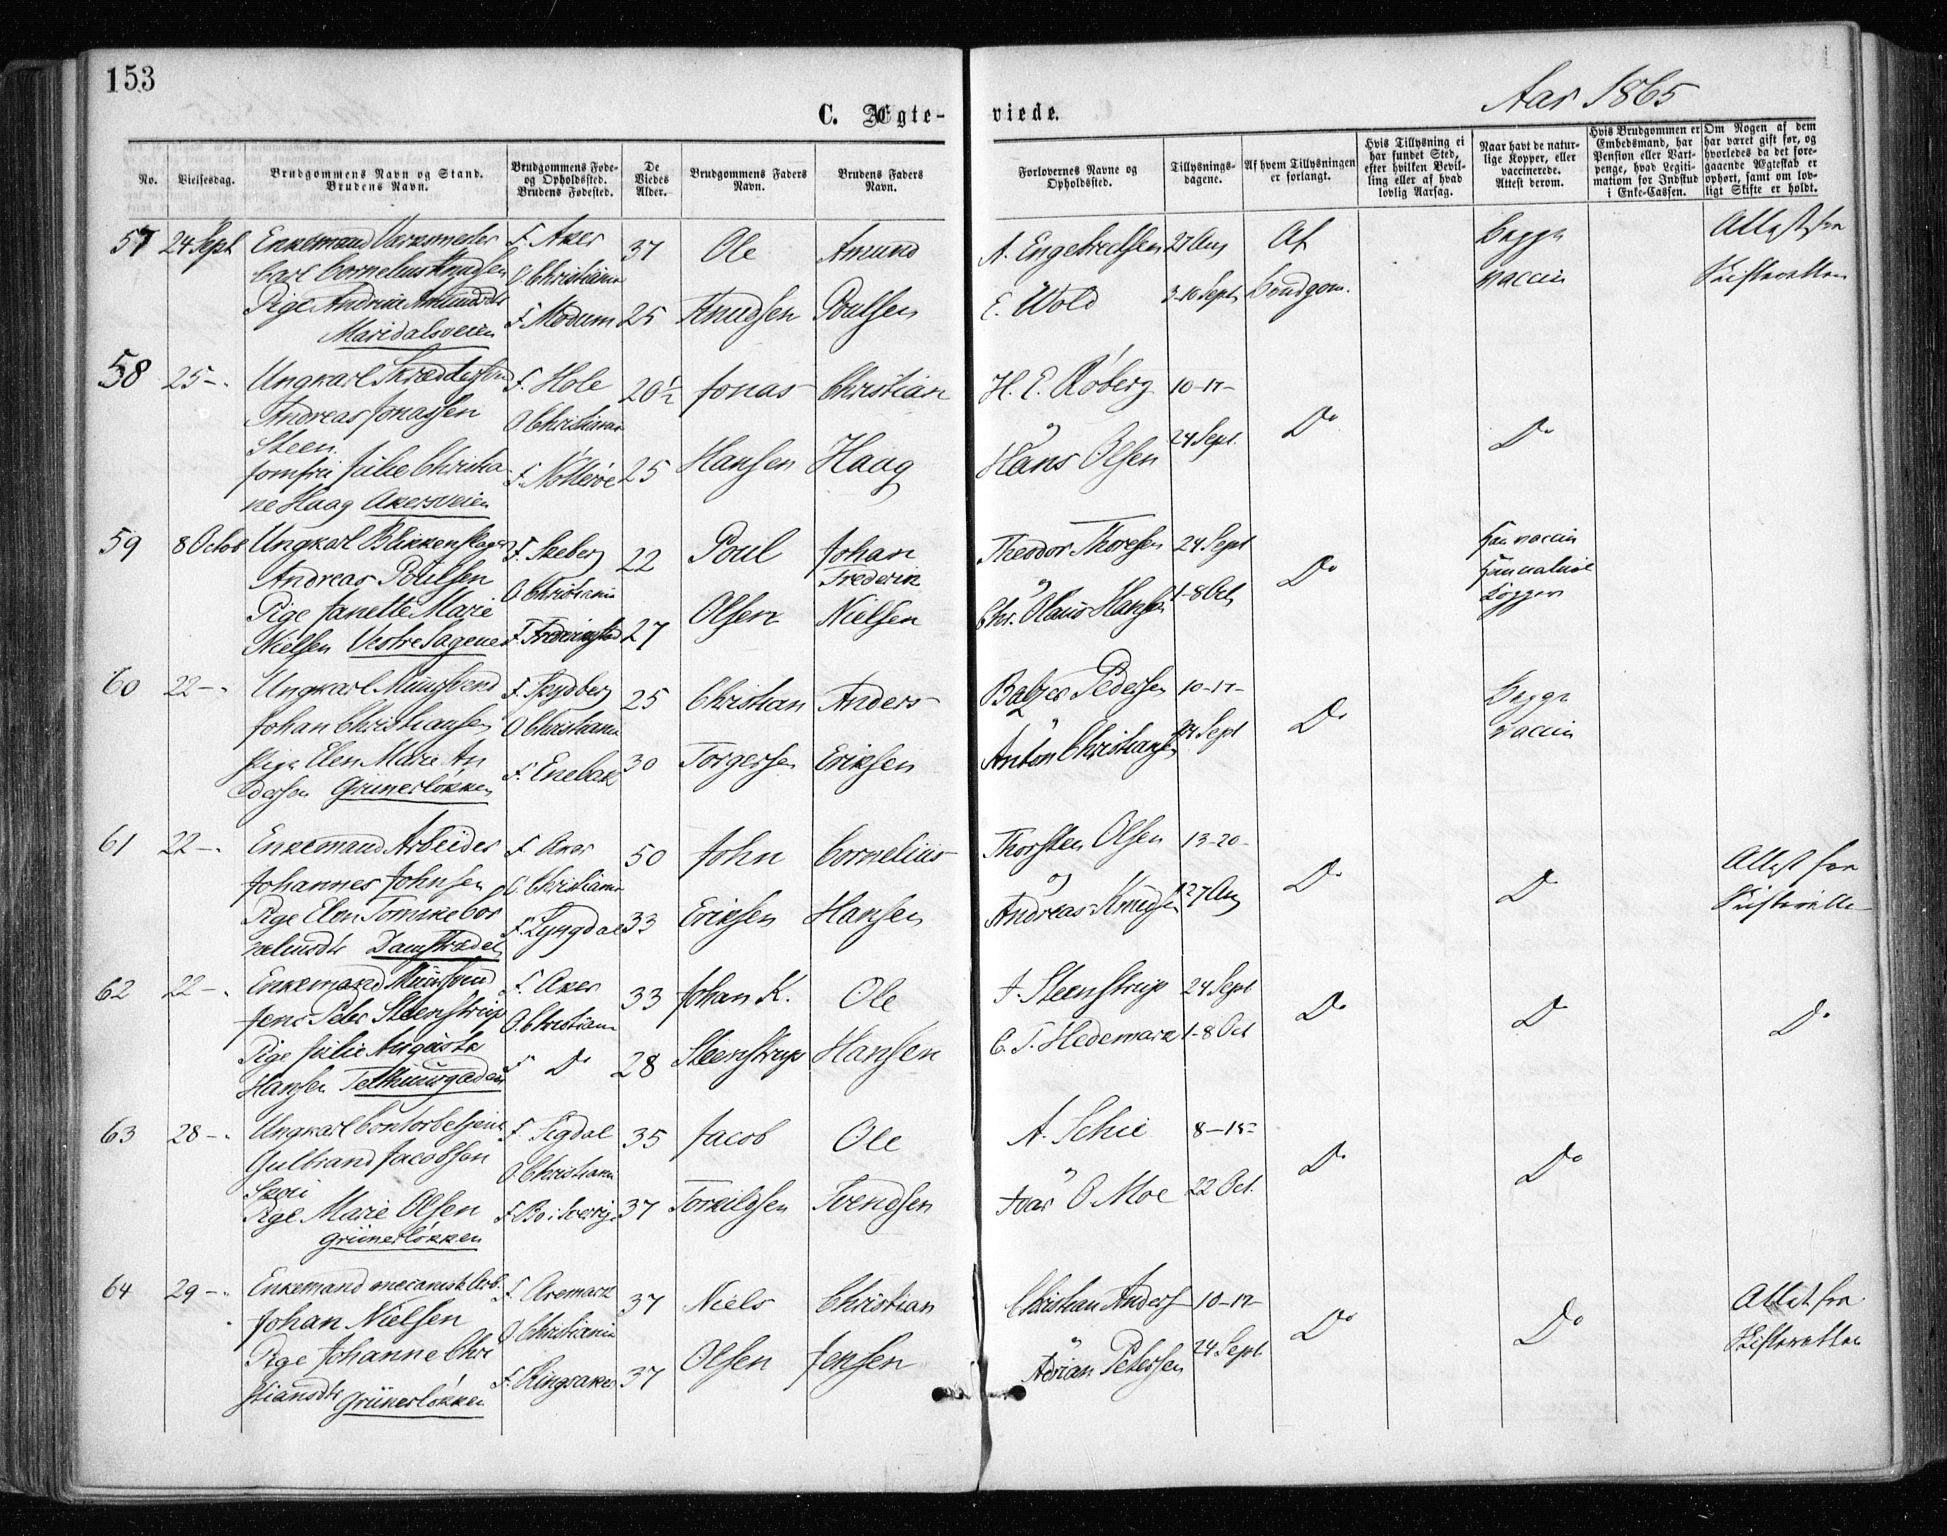 153
Aar 1865
C. Ægteviede.
No.
Vielsesdag.
Brudgommens Navn og Stand.
Brudens Navn.
Brudgommens Føde-
og Opholdssted.
Brudens Fødested.
De
Viedes
Alder.
Brudgommens Faders
Navn.
Brudens Faders
Navn.
Forlovernes Navne og
Opholdssted.
Tillysnings-
dagene.
Af hvem Tillysningen
er forlangt.
Hvis Tillysning ei
har fundet Sted,
efter hvilken Bevil-
ling eller af hvad
lovlig Aarsag.
Naar havt de natur-
lige Kopper, eller
vaccinerede.
Attest derom.
Hvis Brudgommen er
Embedsmand, har
Pension eller Vart-
penge, hvad Legiti-
mation for Indskud
i Enke-Cassen.
Om Nogen af dem
har været gift før, og
hvorledes da det fore-
gaaende Ægteskab er
ophørt, samt om lov-
ligt Skifte er holdt.
57 24 Sept Enkemand Værksmester F. Aker 37 Ole Amund A. Engebrethsen 27 Aug Af Begge Attest fra
Carl Cornelius Knudsen O Christiania
Pige Andrine Amundsdr F. Modum 25 Knudsen Poulsen E. Wold 3-10 Sept Brudgom. vaccin Skifteretten
Maridalsveien
58 25 - Ungkarl Skræddersvend F. Hole 20½ Jonas Christian H. E. Røberg 10-17-
Andreas Jonassen O Christiania og 24 Sept. Do Do
Steen
Jomfru Julie Christia- F. Nøtterøe 25 Hansen Haag Hans Olsen
ne Haag Akersveien
59 8 Octob Ungkarl Blikkenslager F. Skeberg 22 Poul Johan Theodor Thoresen 24 Sept han vaccin
Andreas Poulsen O Christiania Frederik og Do hun naturl
Pige Janette Marie Olsen Nielsen Chr. Olaus Hansen 1-8 Oct Kopper
Nielsen Vestre Sagene F. Frederikstad 27
60 22 - Ungkarl Muursvend F. Spydberg 25 Christian Anders Balzer Pedersen 10-17- Begge
Johan Christiansen O Christiania og 24 Sept Do vaccin
Pige Elen Marie An F. Enebak 30 Torgersen Eriksen Anton Christiansen
dersen Grünerløkken
61 22 - Enkemand Arbeider F. Aker 50 John Cornelius Thorsten Olsen 13-20- Attest fra
Johannes Johnsen O Christiania og Do Do
Pige Elen Tomine Cor F. Lyngdal 33 Eriksen Hansen Andreas Knudsen 27 Aug Skifteretten
neliusdtr Damstrædet
62 22 - Enkemand Muursvend F. Aker 33 Johan K. Ole J. Steenstrup 24 Sept
Jens Peter Steenstrup O Christiania Do Do Do
Pige Julie Augusta F Do 28 Steenstrup Hansen C. T. Hedemark 1-8 Oct
Hansen Telthuusgaden
63 28 - Ungkarl Contorbetjent F. Sigdal 35 Jacob Ole A. Schie 8-15-
Gulbrand Jacobsen O Christiania og Do Do
Skoie
Pige Marie Olsen 37 Torkildsen Svendsen Ivar O Moe 22 Oct.
Grünerløkken
64 29 - Enkemand mecanisk Arb. F. Aremark 37 Niels Christian Christian Anders 10-17- Attest fra
Johan Nielsen O Christiania og Do Do
Pige Johanne Chri F. Ringsaker 37 Olsen Jensen Adrian Petersen 24 Sept Skifteretten
stiansdtr Grünerløkken